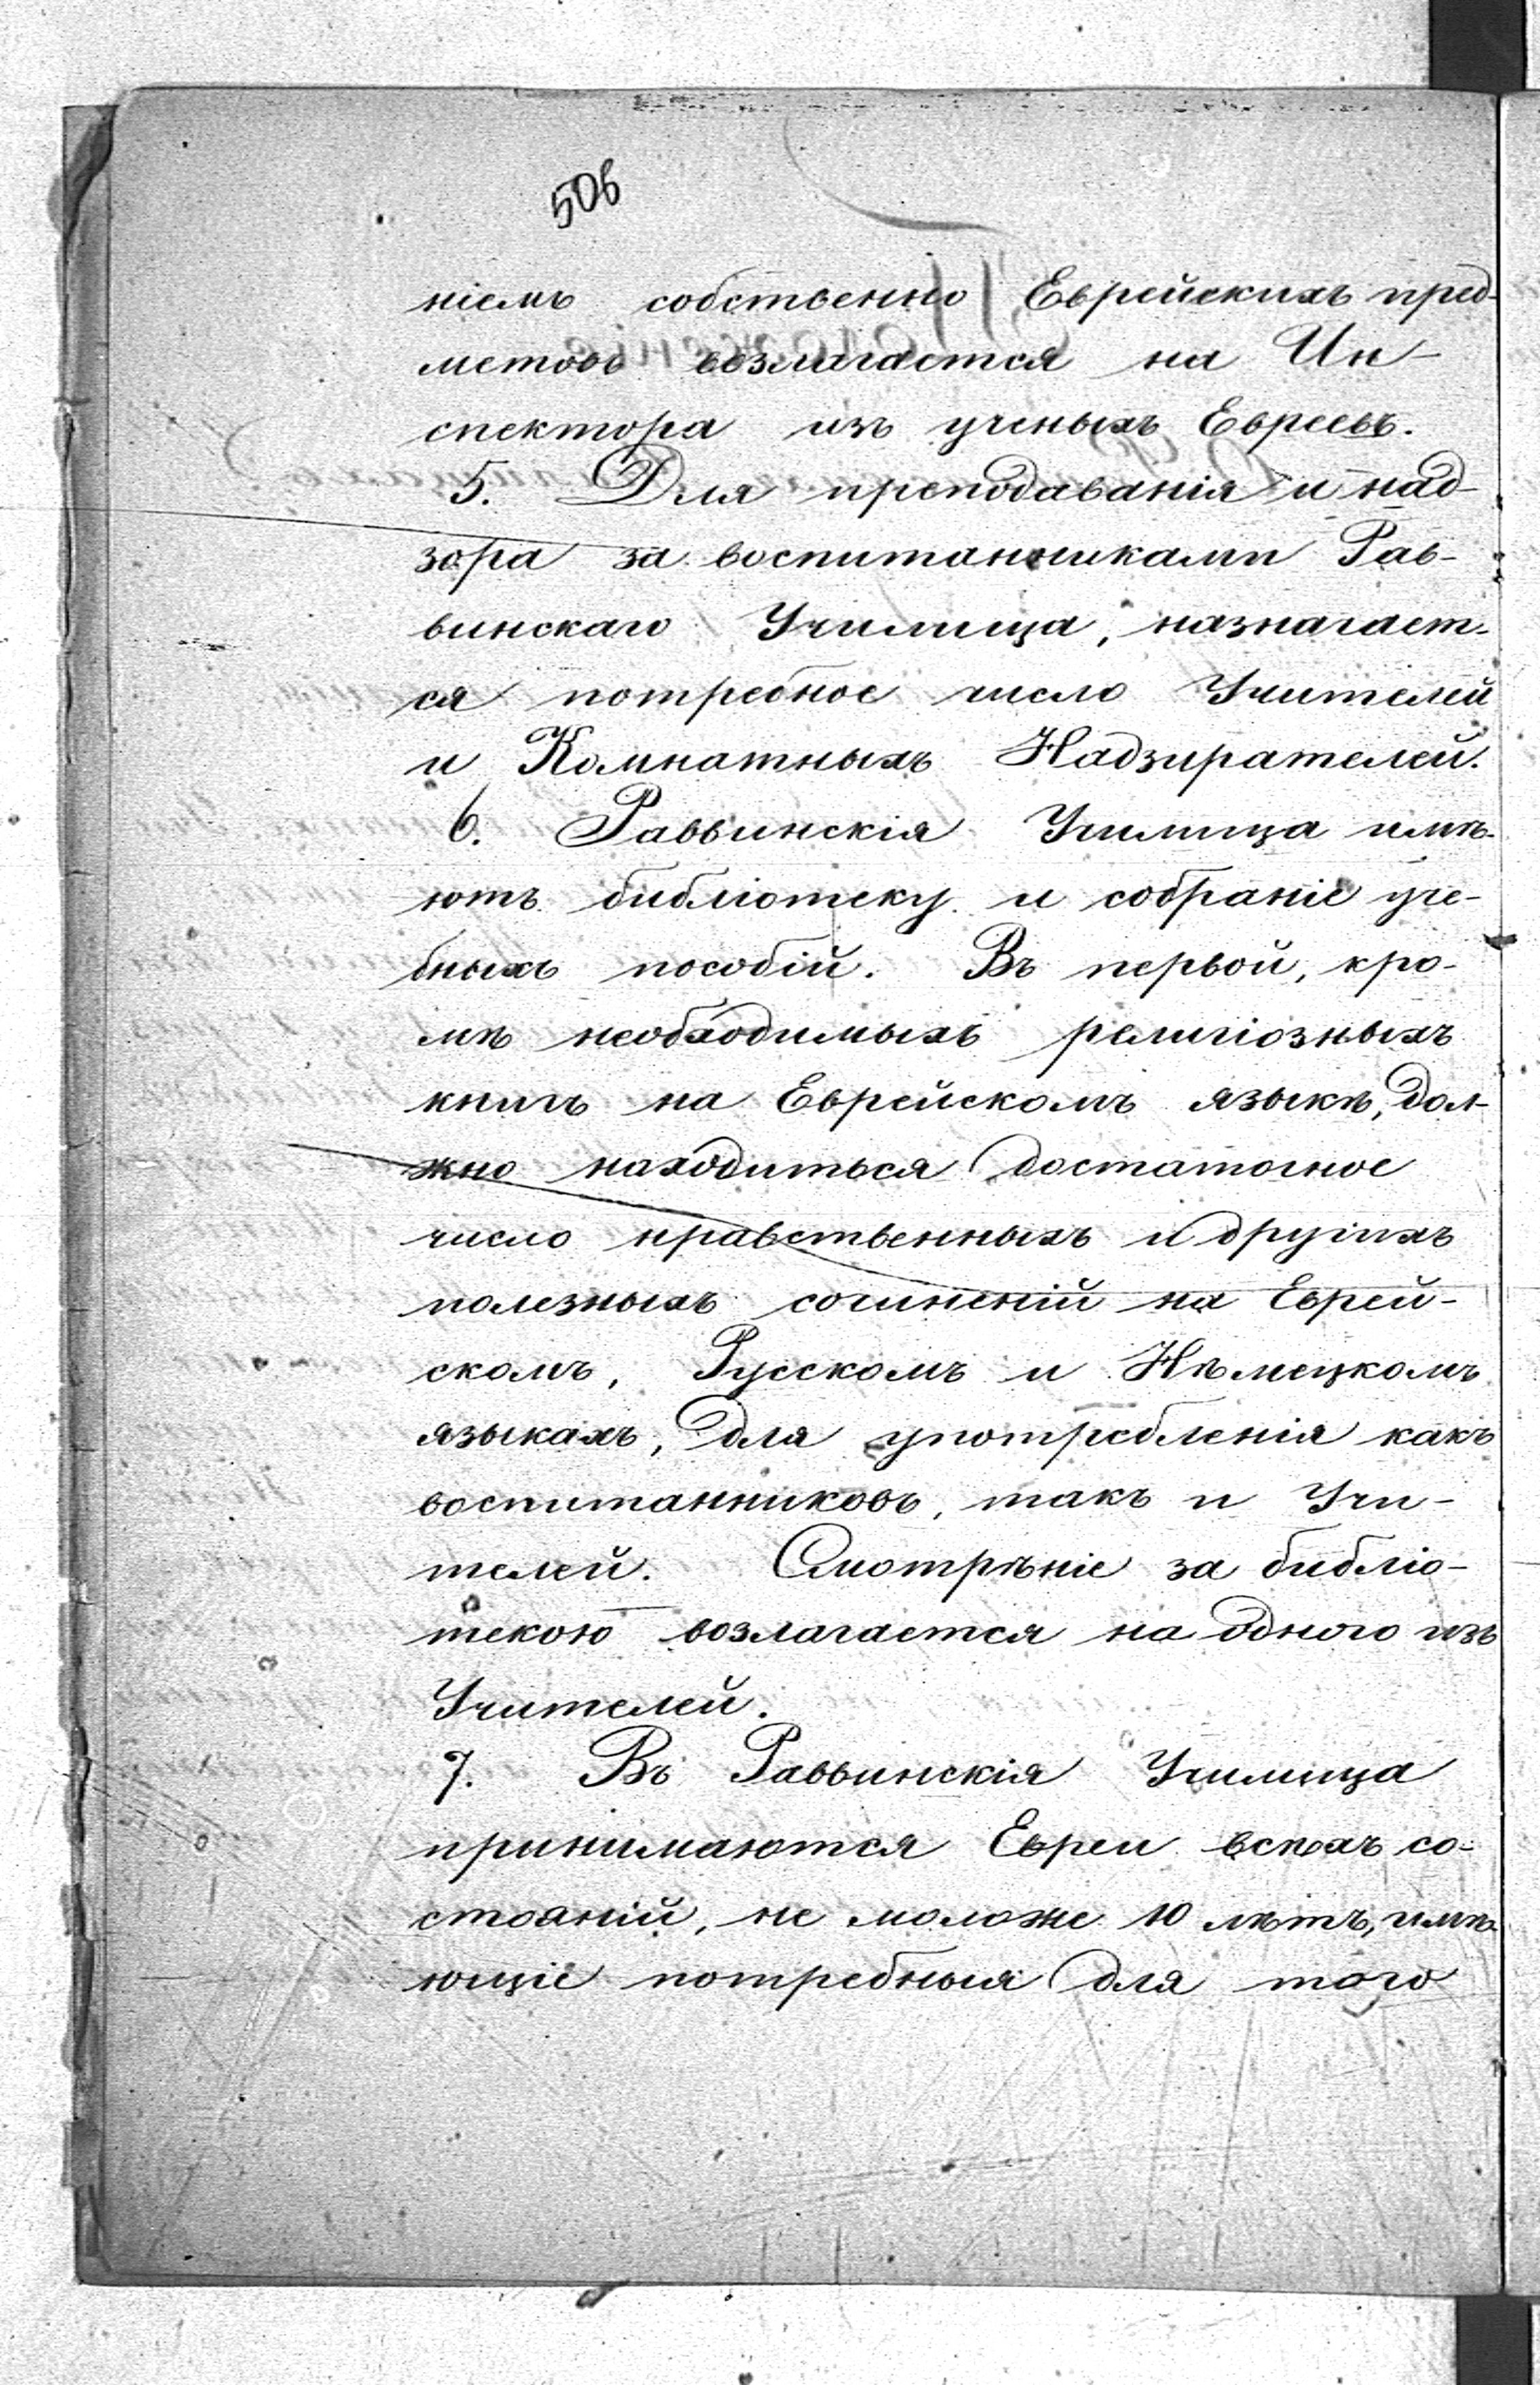 506
ніемъ собственно Еврейскихъ пред-
метовъ возлагается на Ин-
спектора изъ ученыхъ Евреевъ.
5. Для преподаванія и над-
зора за воспитанниками Рав-
винскаго Училища, назначает-
ся потребное число Учителей
и Комнатныхъ Надзирателей.
6. Раввинскія Училища имѣ-
ютъ библіотеку и собраніе уче-
бныхъ пособій. Въ первой, кро-
мѣ необходимыхъ религіозныхъ
книгъ на Еврейскомъ языкѣ, дол-
жно находиться достаточное
число нравственныхъ и другихъ
полезныхъ сочиненій на Еврей-
скомъ, Русскомъ и Нѣмецкомъ
языкахъ, для употребленія какъ
воспитанниковъ, такъ и Учи-
телей. Смотрѣніе за библіо-
текою возлагается на одного изъ
Учителей.
7. Въ Раввинскія Училища
принимаются Евреи всѣхъ со-
стояній, не моложе 10 лѣтъ, имѣ-
ющіе потребныя для того